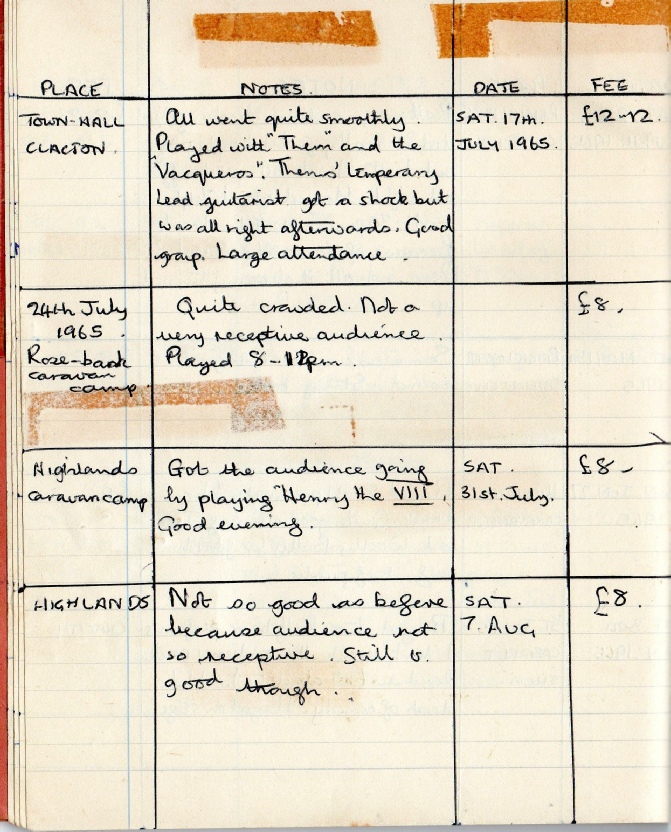 PLACE NOTES. DATE FEE
TOWN-HALL All went quite smoothly SAT. 17th. £12-12.
CLACTON. Played with "Them" and the JULY 1965.
"Vacqueros". Thems' temperary
Lead guitarist got a shock but
was all right afterwards. Good
group. Large attendance
24th July Quite crowded. Not a £8.
1965 very receptive audience.
Rose-bank Played 8-12pm.
caravan
camp
Highlands Got the audience going SAT. £8-
caravancamp by playing "Henry the VIII. 31st. July.
Good evening.
HIGHLANDS Not so good as before SAT. £8.
because audience not 7. AUG
so receptive. Still v.
good though.